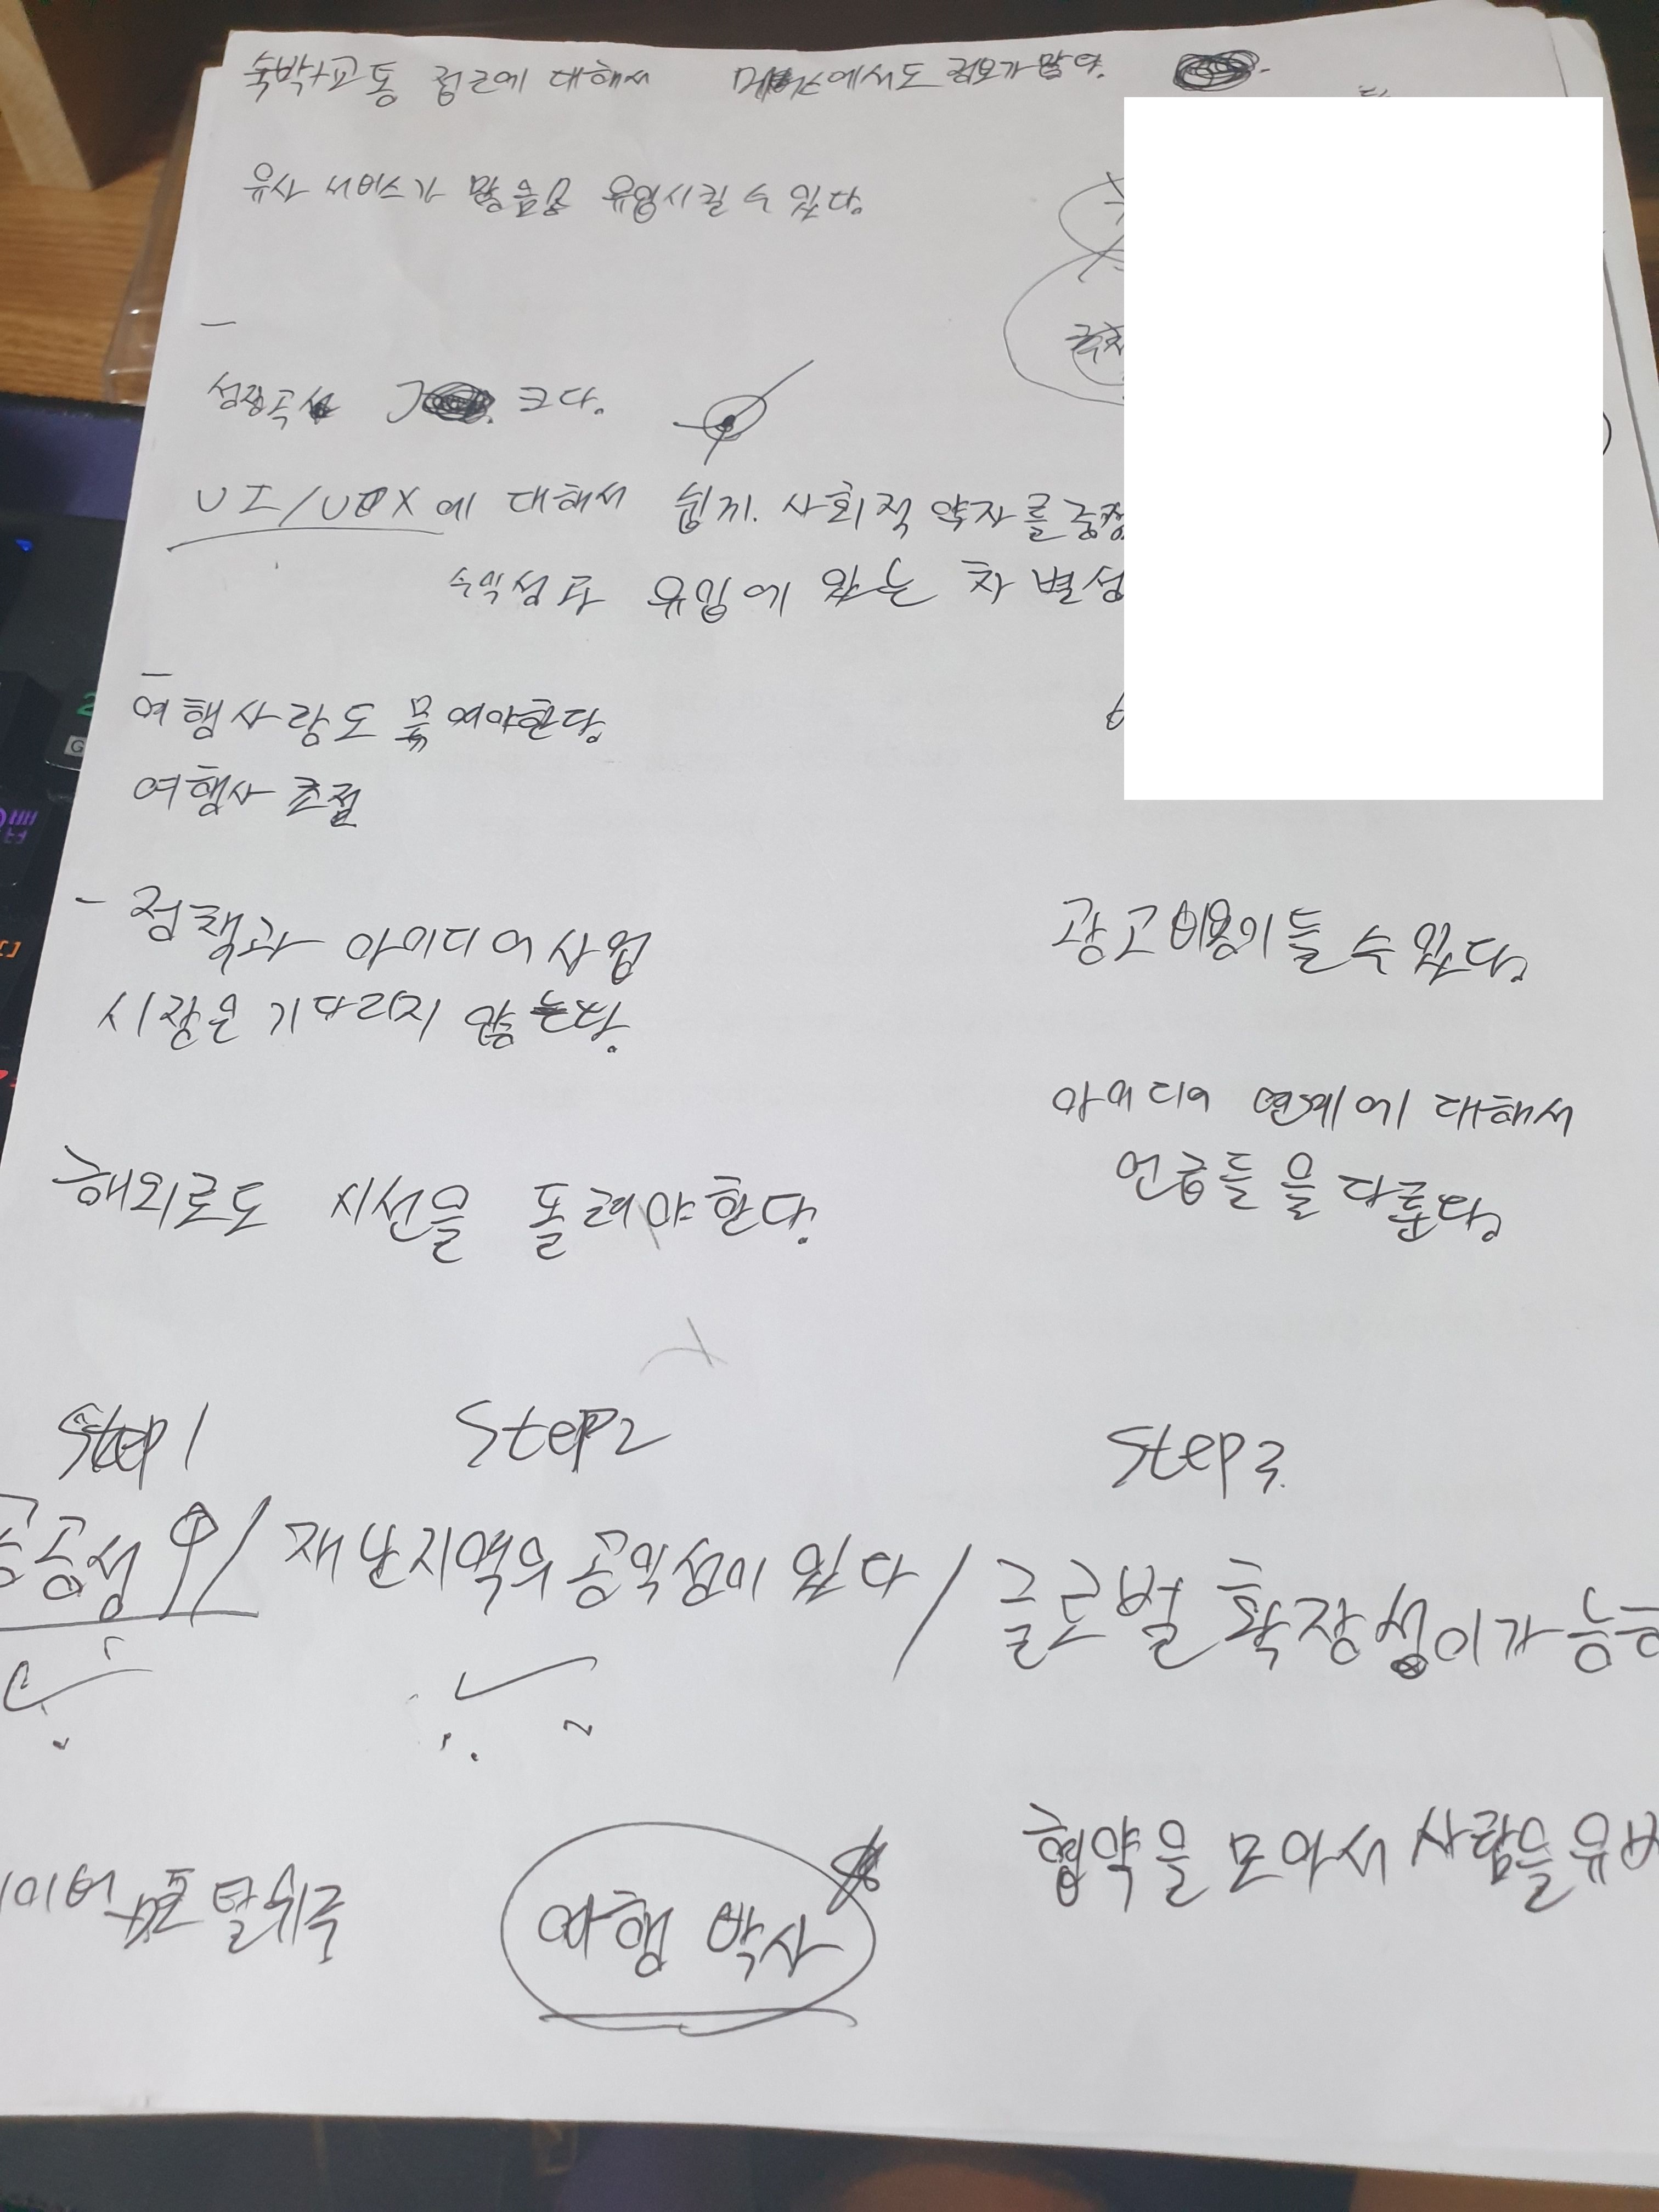 숙박+교통 접근에 대해서
유사 서비스가 많음을 유입시킬 수 있다.
크다.
UI/UX에 대해서 쉽게. 사회적 약자를
수익성과 유입에 있는 차별성
여행사랑도 묶여야한다.
여행사 초점
- 정책과 아이디어 사업
시장은 기다리지 않는다.
광고비용이 들 수 있다.
아이디어 연계에 대해서
언급들을 다룬다.
해외로도 시선을 돌려야한다.
Step1 Step2 Step3.
공공성 / 재난지역의 공익성이 있다 / 글로벌 확장성이 가능
협약을 모아서 사람을
여행 박사